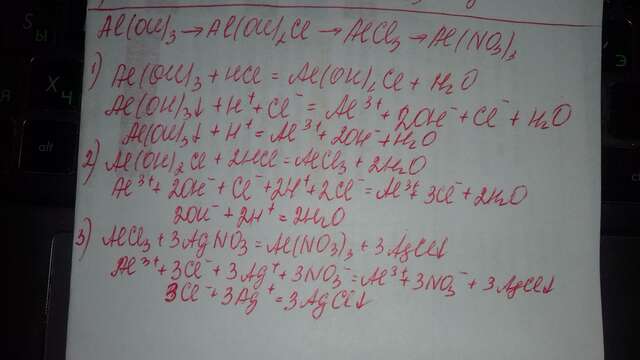 Al(OH)₃ → Al(OH)₂Cl → AlCl₃ → Al(NO₃)₃
1) Al(OH)₃ + HCl = Al(OH)₂Cl + H₂O
Al(OH)₃↓ + H⁺ + Cl⁻ = Al³⁺ + 2OH⁻ + Cl⁻ + H₂O
Al(OH)₃↓ + H⁺ = Al³⁺ + 2OH⁻ + H₂O
2) Al(OH)₂Cl + 2HCl = AlCl₃ + 2H₂O
Al³⁺ + 2OH⁻ + Cl⁻ + 2H⁺ + 2Cl⁻ = Al³⁺ + 3Cl⁻ + 2H₂O
2OH⁻ + 2H⁺ = 2H₂O
3) AlCl₃ + 3AgNO₃ = Al(NO₃)₃ + 3AgCl↓
Al³⁺ + 3Cl⁻ + 3Ag⁺ + 3NO₃⁻ = Al³⁺ + 3NO₃⁻ + 3AgCl↓
3Cl⁻ + 3Ag⁺ = 3AgCl↓
Ы
S
Ч
X
Я
Э